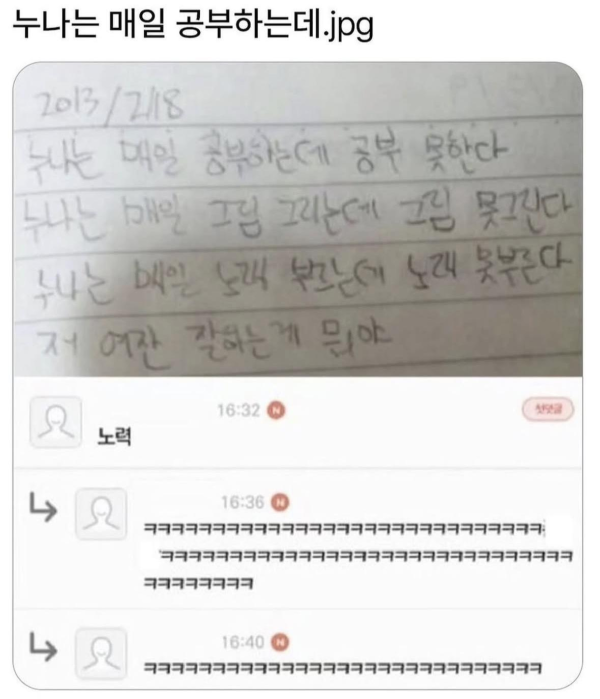 누나는 매일 공부하는데.jpg
2013/2/18
누나는 매일 공부하는데 공부 못한다
누나는 매일 그림 그리는데 그림 못그린다
누나는 매일 노래 부르는데 노래 못부른다
저 여잔 잘하는게 뭐야
16:32 N 첫댓글
노력
16:36 N
ㅋㅋㅋㅋㅋㅋㅋㅋㅋㅋㅋㅋㅋㅋㅋㅋㅋㅋㅋㅋㅋㅋㅋㅋㅋㅋㅋㅋㅋ
ㅋㅋㅋㅋㅋㅋㅋㅋㅋㅋㅋㅋㅋㅋㅋㅋㅋㅋㅋㅋㅋㅋㅋㅋㅋㅋㅋㅋㅋㅋ
ㅋㅋㅋㅋㅋㅋㅋㅋ
16:40 N
ㅋㅋㅋㅋㅋㅋㅋㅋㅋㅋㅋㅋㅋㅋㅋㅋㅋㅋㅋㅋㅋㅋㅋㅋㅋㅋㅋㅋㅋ